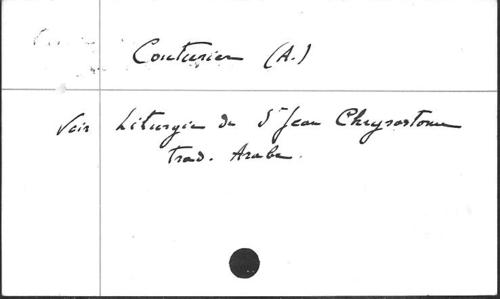 Couturier (A.)
Voir Liturgie de St Jean Chrysostome
Trad. Arabe.